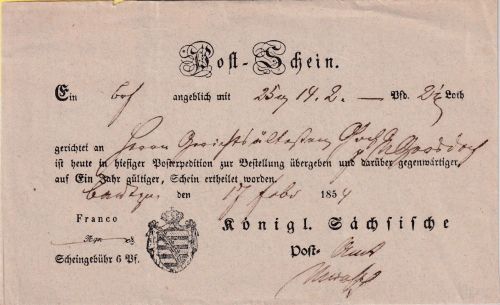 Post-Schein.
Ein Brf angeblich mit 25 14. 2. — Pfd. 2½ Loth
gerichtet an Herrn Gerichtsältesten
ist heute in hiesiger Postexpedition zur Bestellung übergeben und darüber gegenwärtiger,
auf Ein Jahr gültiger, Schein ertheilet worden.
den 17 Febr 1854
Franco
Königl. Sächsische
Post- Amt
Scheingebühr 6 Pf.